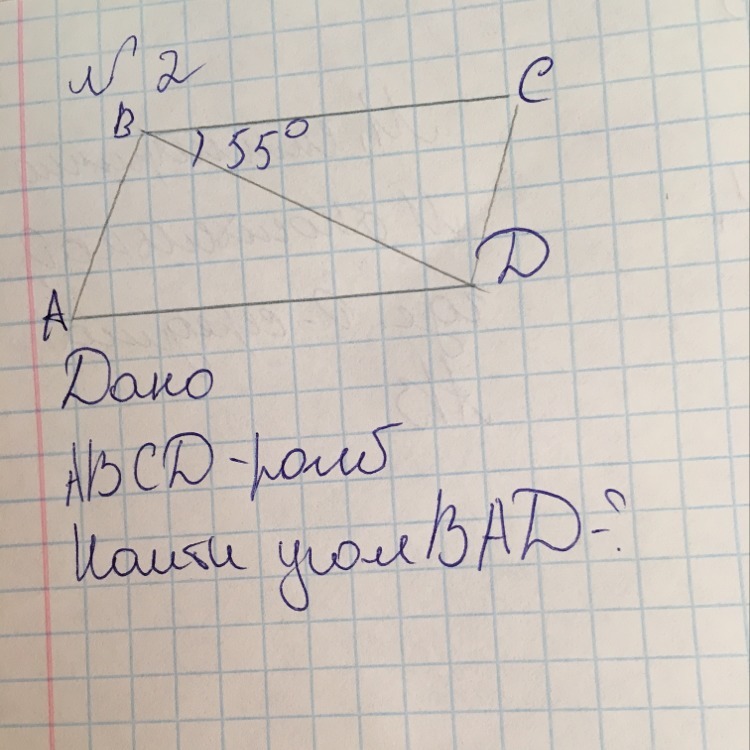 № 2
B C
55°
A D
Дано
ABCD - ромб
Найти угол BAD - ?